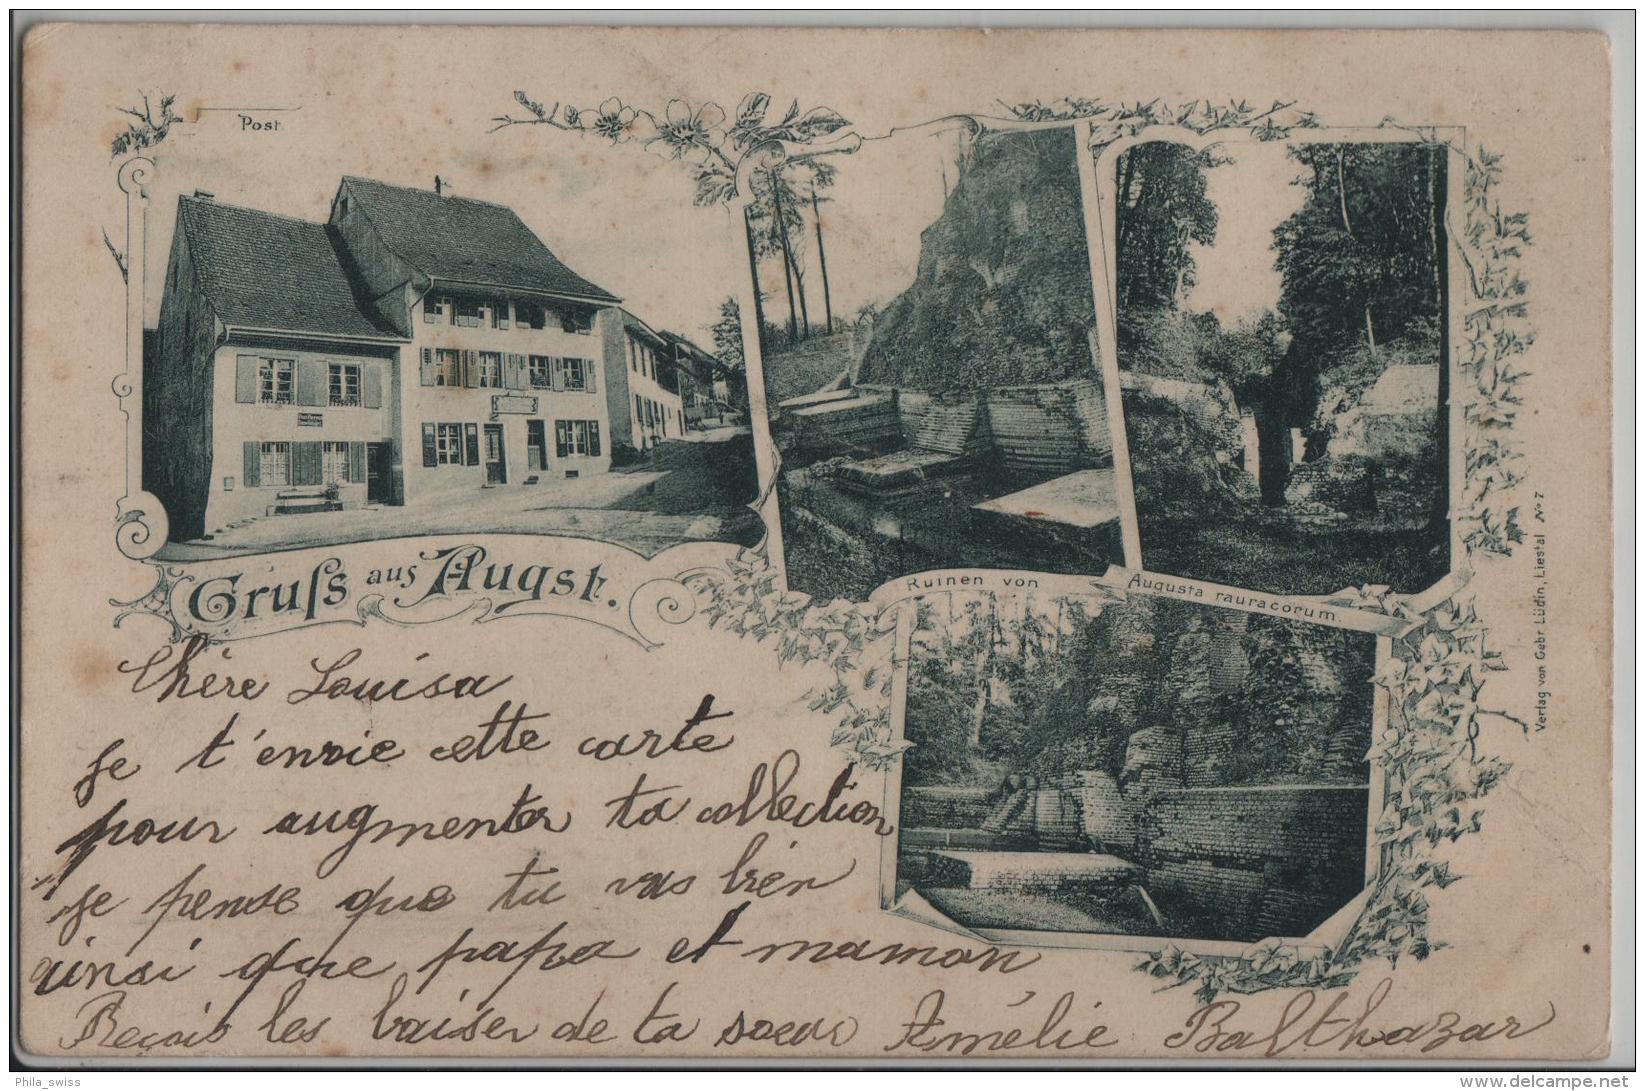 Post
Gruſs aus Augst.
Ruinen von Augusta rauracorum.
Verlag von Gebr Lüdin, Liestal No 7
Chère Louisa
je t'envoie cette carte
pour augmenter ta collection
je pense que tu vas bien
ainsi que papa et maman
Reçois les baiser de ta soeur Amélie Balthazar
Phila_swiss
delcampe.net